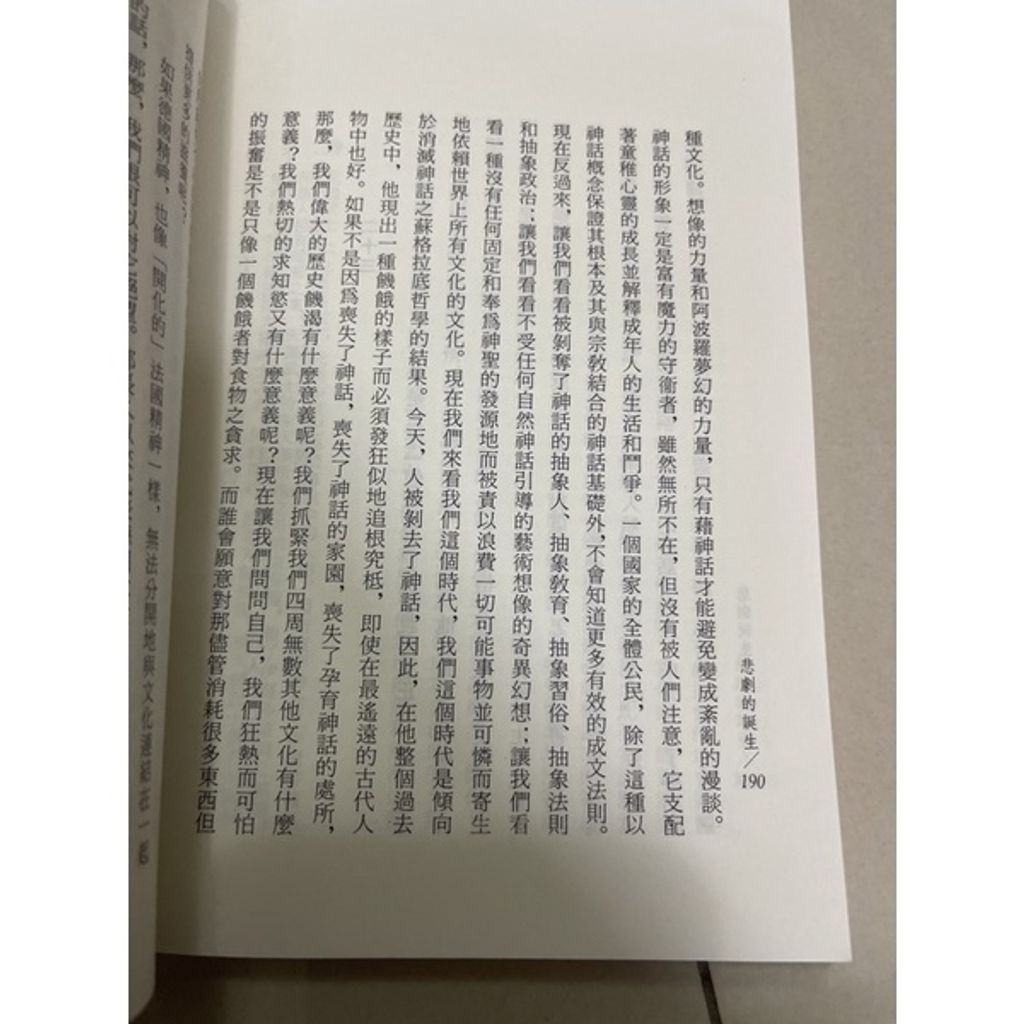 悲劇的誕生／190
種文化。想像的力量和阿波羅夢幻的力量，只有藉神話才能避免變成紊亂的漫談。
神話的形象一定是富有魔力的守衛者，雖然無所不在，但沒有被人們注意，它支配
著童稚心靈的成長並解釋成年人的生活和鬥爭。一個國家的全體公民，除了這種以
神話概念保證其根本及其與宗教結合的神話基礎外，不會知道更多有效的成文法則。
現在反過來，讓我們看看被剝奪了神話的抽象人、抽象教育、抽象習俗、抽象法則
和抽象政治；讓我們看看不受任何自然神話引導的藝術想像的奇異幻想；讓我們看
看一種沒有任何固定和奉爲神聖的發源地而被責以浪費一切可能事物並可憐而寄生
地依賴世界上所有文化的文化。現在我們來看我們這個時代，我們這個時代是傾向
於消滅神話之蘇格拉底哲學的結果。今天，人被剝去了神話，因此，在他整個過去
歷史中，他現出一種饑餓的樣子而必須發狂似地追根究柢，即使在最遙遠的古代人
物中也好。如果不是因爲喪失了神話，喪失了神話的家園，喪失了孕育神話的處所，
那麼，我們偉大的歷史饑渴有什麼意義呢？我們抓緊我們四周無數其他文化有什麼
意義？我們熱切的求知慾又有什麼意義呢？現在讓我們問問自己，我們狂熱而可怕
的振奮是不是只像一個饑餓者對食物之貪求。而誰會願意對那儘管消耗很多東西但
如果德國精神，也像「開化的」法國精神一樣，無法分開地與文化連結在一起
的話，那麼，我們很可以對它